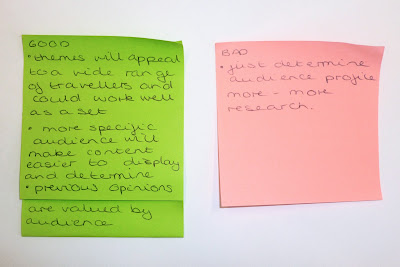 GOOD
• themes will appeal
to a wide range
of travellers and
could work well
as a set
• more specific
audience will
make content
easier to display
and determine
• previous opinions
are valued by
audience
BAD
• just determine
audience profile
more - more
research.